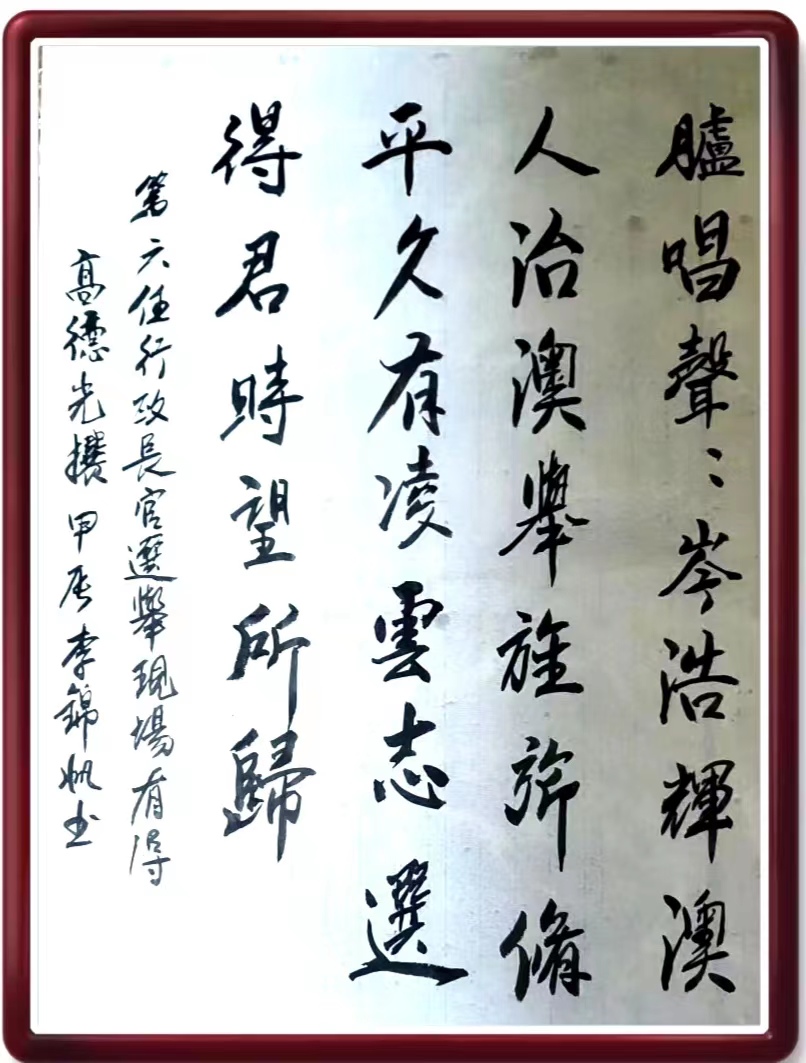 臚唱聲〻岑浩輝澳
人治澳舉旌旂脩
平久有凌雲志選
得君時望所歸
第六任行政長官選舉現場有得
高德光攥 甲辰李錦帆书